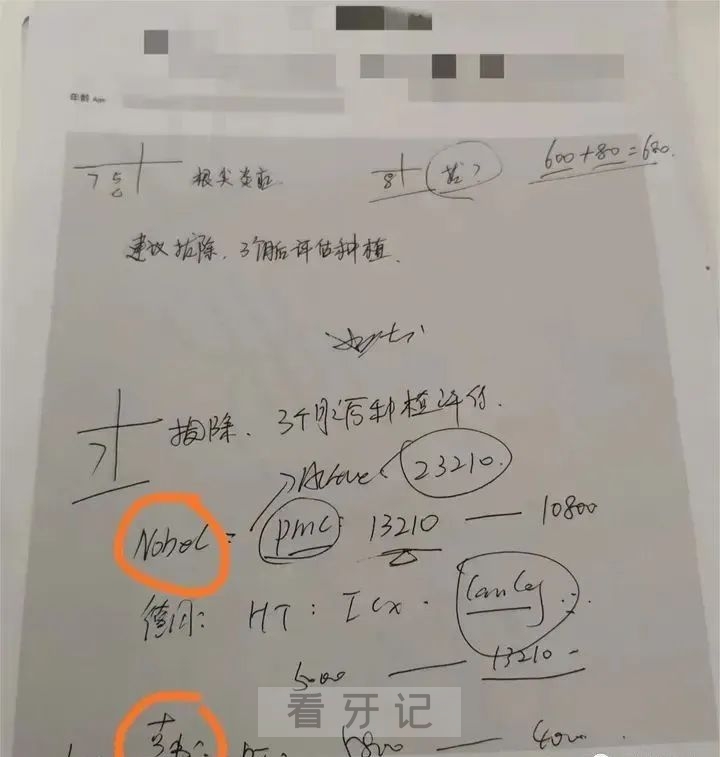 年龄 Age
7 5 6 根尖炎症 8 拔? 600+80=680.
建议拔除, 3个月后评估种植.
7 拔除. 3个月之后种植评估.
Active 23210.
Nobel: pmc: 13210 — 10800
德国: HT: Icx. Camlog
5000 — 13210
看牙记
6800 — 4000